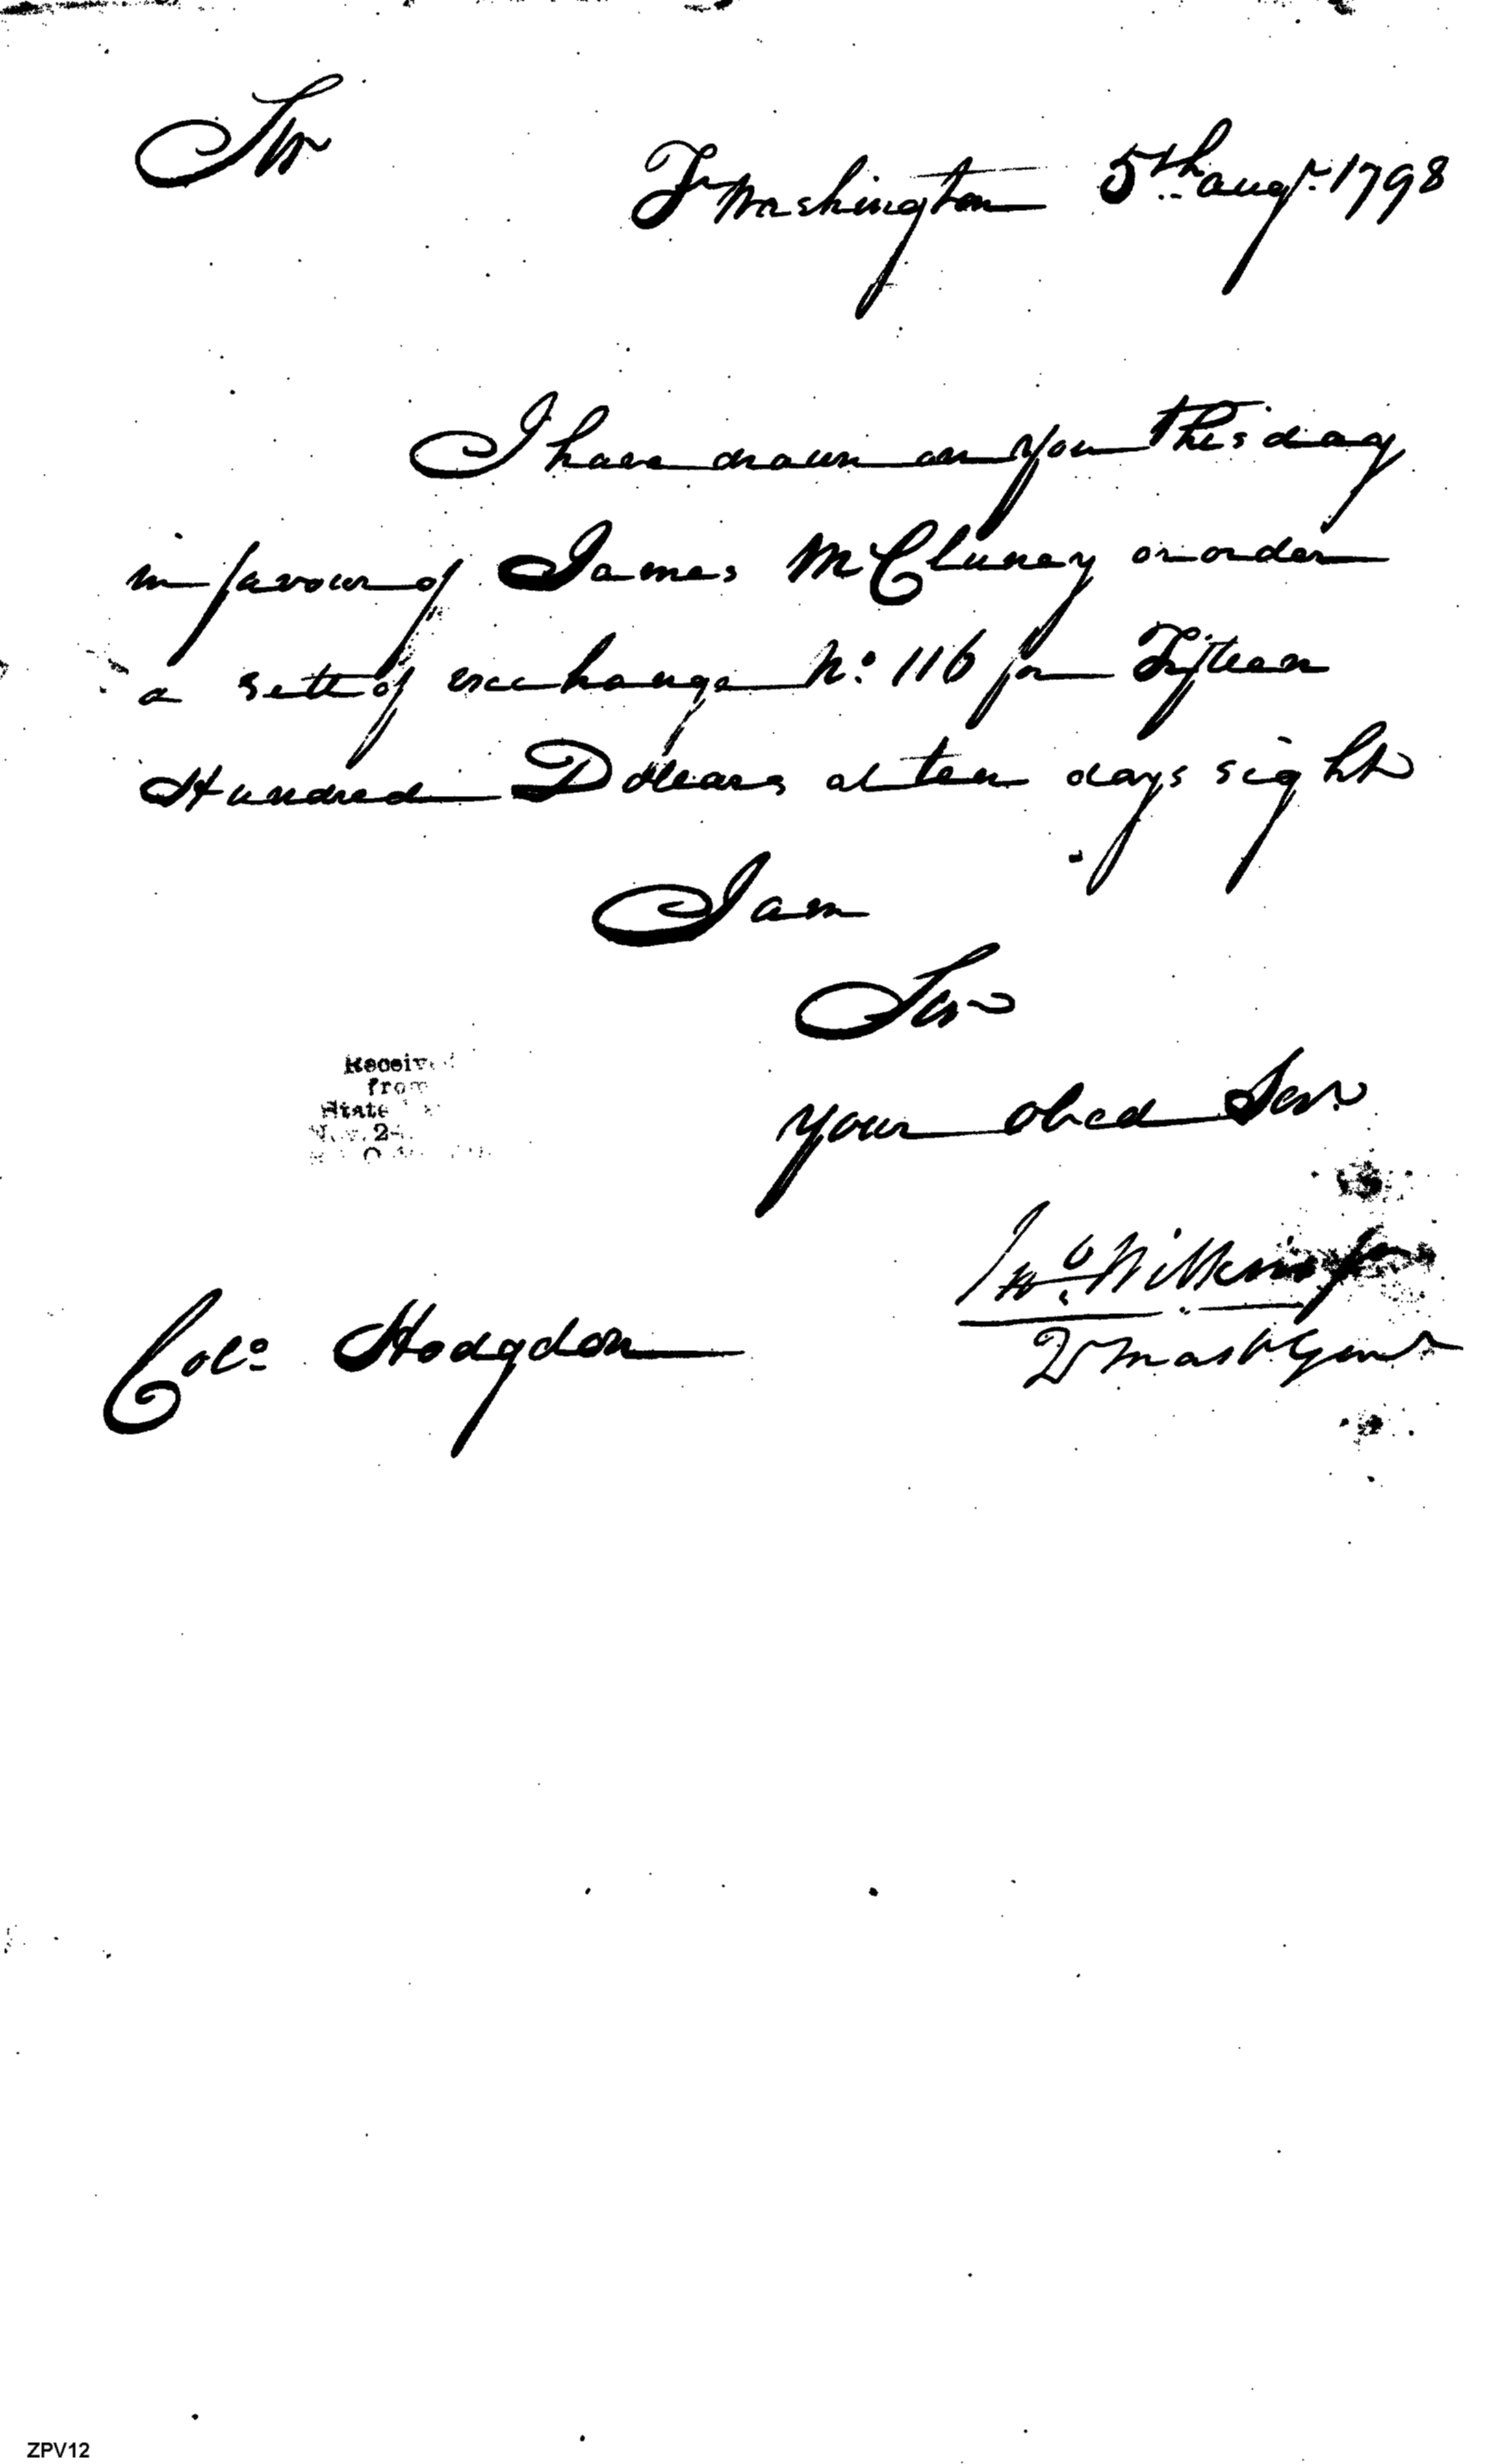 Sir
Ft Washington 5th augt 1798
I have drawn on you this day
in favour of James McCluney or order
a sett of exchange No: 116 for Fifteen
Hundred Dollars at ten days sight
I am
Sir
your obed Ser.
Jno. Wilkins Jr
Qr Mastr Genl
Colo. Hodgdon
Received
from
State
ZPV12